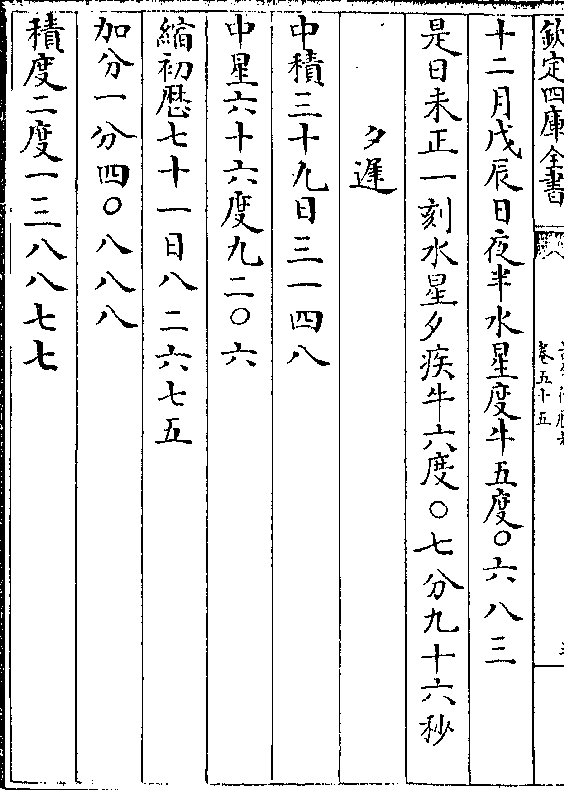 欽定四庫全書
卷五十五
十二月戊辰日夜半水星度牛五度〇六八三
是日未正一刻水星夕疾牛六度〇七分九十六秒
夕遲
中積三十九日三一四八
中星六十六度九二〇六
縮初厯七十一日八二六七五
加分一分四〇八八八
積度二度一三八八七七